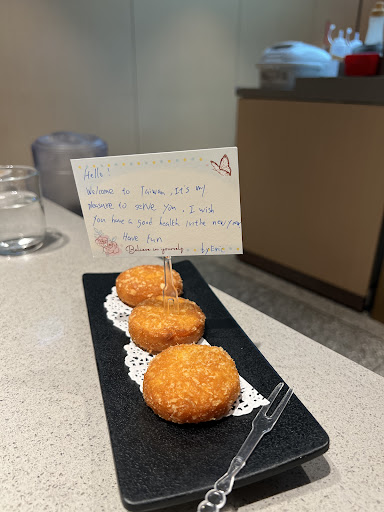 Hello!
Welcome to Taiwan. It's my
pleasure to serve you. I wish
you have a good health in the new year
Have fun
Believe in yourself
by Eric